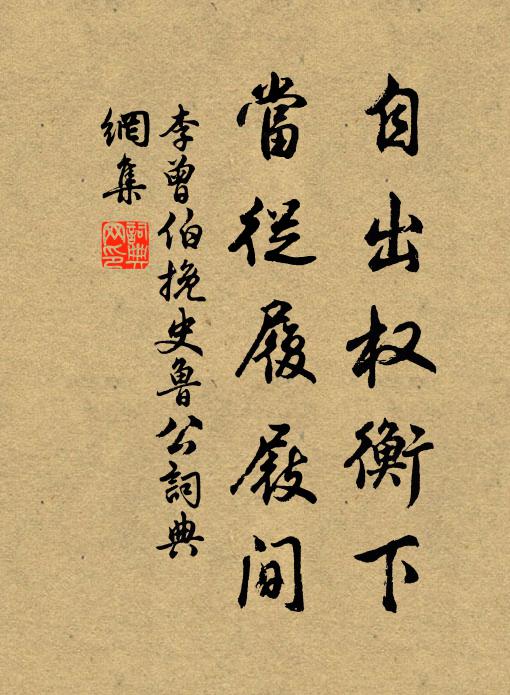 自出权衡下
當從履屐間
李曾伯挽史魯公詞典
網集
詞典網印